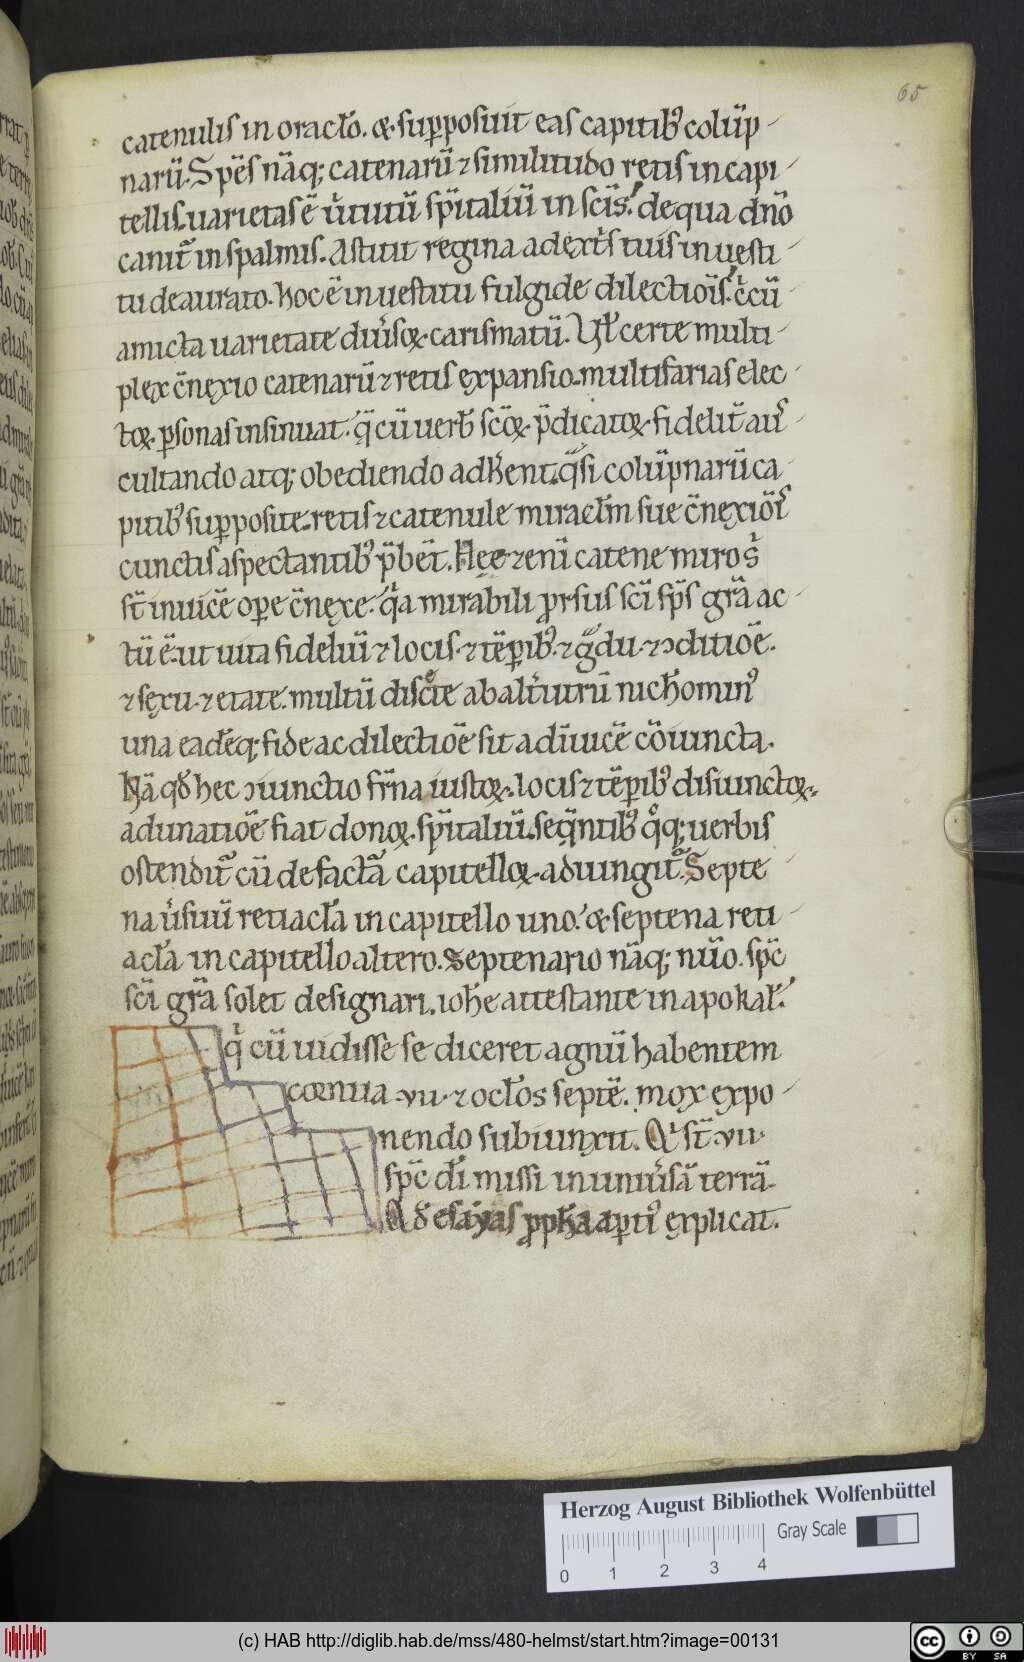 65
catenulis in oracło. & sup̲posuit eas capitibꝰ colūp-
narū. Spēs nāq; catenarū ⁊ similitudo retis in capi-
tellis. uarietas ē ũtutū sp̄italiū in sc̄is. de qua dn̄o
canit̃ in spalmis. Astitit regina a dext̃s tuis in uesti-
tu deaurato. hoc ē in uestitu fulgide dilectiōis. c̃cū-
amicta uarietate diũsoꝝ carismatū. Vł certe multi-
plex c̄nexio catenarū ⁊ retis expansio. multifarias elec-
toꝝ. ꝑsonas insinuat. q̄ cū uerb̄ sc̄oꝝ. p̄dicatoꝝ. fidelit̃ aus-
cultando atq; obediendo adh̃ent. q̄si colūpnarū ca-
pitibꝰ supposite. retis ⁊ catenule miracłm sue c̄nexiōis
cunctis aspectantibꝰ p̄bēt. Hee ⁊enī catene miro s̃
st̄ inuicē oꝑe c̄nexe. q̃a mirabili ꝓrsus sc̄i sp̄s gr̄a ac-
tū ē. ut uita fideliū ⁊ locis. ⁊ tēꝑibꝰ. ⁊ g̃du. ⁊ ↄditiōe.
⁊ sexu. ⁊ etate. multū discte ab alt̃utrū nich̃ominꝰ
una eadēq; fide ac dilectiōe sit ad īuicē cōiuncta.
Nā qđ hec ↄiunctio fr̄na iustoꝝ. locis ⁊ tēꝑibꝰ disiunctoꝝ.
adunatiōe fiat donoꝝ. sp̄italiū. seq̄ntibꝰ q°q; uerbis
ostendit̃ cū de factā capitelloꝝ. adiungit̃. Septe-
na ũsuū retiacła in capitello uno. & septena reti-
acła in capitello altero. Septenario nāq; nūo. sp̄c
sc̄i gr̄a solet designari. ioh̄e attestante in apokał.
q̃ cū uidisse se diceret agnū habentem
cornua .vii. ⁊ ocłos septē. mox expo-
nendo subiunxit. Q̃ st̄ .vii.
sp̄c dī missi in uniũsā terrā.
Qđ esaẏas ꝓpħa aꝑtiꝰ explicat.
Herzog August Bibliothek Wolfenbüttel
Gray Scale
0 1 2 3 4
(c) HAB http://diglib.hab.de/mss/480-helmst/start.htm?image=00131
cc BY SA